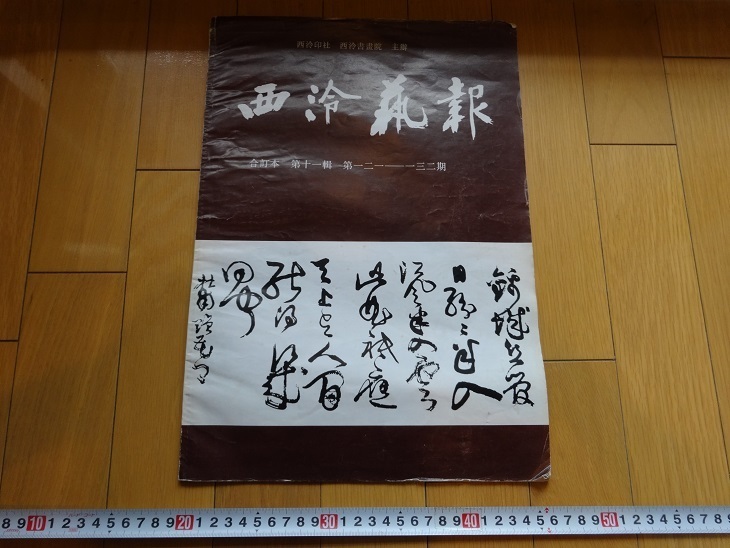 西泠印社 西泠書畫院 主辦
西泠藝報
合訂本 第十一輯 第一二一——一三二期
錦城絲管
日紛紛半入
江風半入雲
此曲祇應
天上有人間
能得幾
回聞
杜甫贈花卿
8 9 10 1 2 3 4 5 6 7 8 9 20 1 2 3 4 5 6 7 8 9 30 1 2 3 4 5 6 7 8 9 40 1 2 3 4 5 6 7 8 9 50 1 2 3 4 5 6 7 8